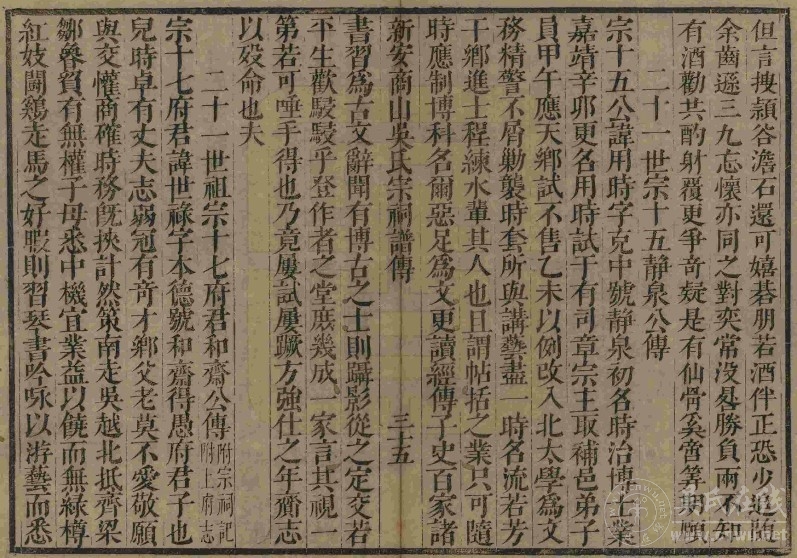 但言搜頴谷澹石還可嬉碁朋若酒伴正恐少追隨
余齒遜三九忘懷亦同之對奕常没晷勝負兩不知
有酒勸共酌射覆更爭竒疑是有仙骨奚啻筭期願
二十一世宗十五靜泉公傳
宗十五公諱用時字克中號靜泉初名時治博士業
嘉靖辛卯更名用時試于有司章宗主取補邑弟子
員甲午應天鄉試不售乙未以例改入北太學爲文
務精警不屑勦襲時套所與講藝盡一時名流若芳
干鄉進士程練水輩其人也且謂帖括之業只可隨
時應制博科名爾惡足爲文更讀經傳子史百家諸
新安商山吳氏宗祠譜傳 三十五
書習爲古文辭聞有博古之士則躡影從之定交若
平生歡駸駸乎登作者之堂庶幾成一家言其視一
第若可唾手得也乃竟屢試屢蹶方強仕之年賫志
以歿命也夫
二十一世祖宗十七府君和齋公傳 附宗祠記 附上府志
宗十七府君諱世祿字本德號和齋得愚府君子也
兒時卓有丈夫志弱冠有竒才鄉父老莫不愛敬願
與交懽商確時務旣挾計然策南走吳越北抵齊梁
鄒魯貿有無權子母悉中機宜業益以饒而無緑樽
紅妓鬪鷄走馬之好暇則習琴書吟咏以游藝而悉